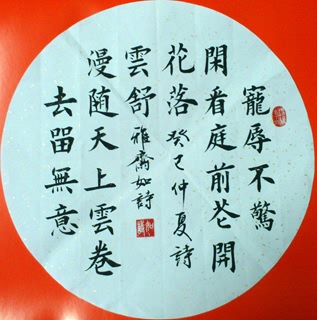 寵辱不驚
閑看庭前芲開
花落
癸巳仲夏詩
去畱無意
漫隨天上雲卷
雲舒
雅齋如詩